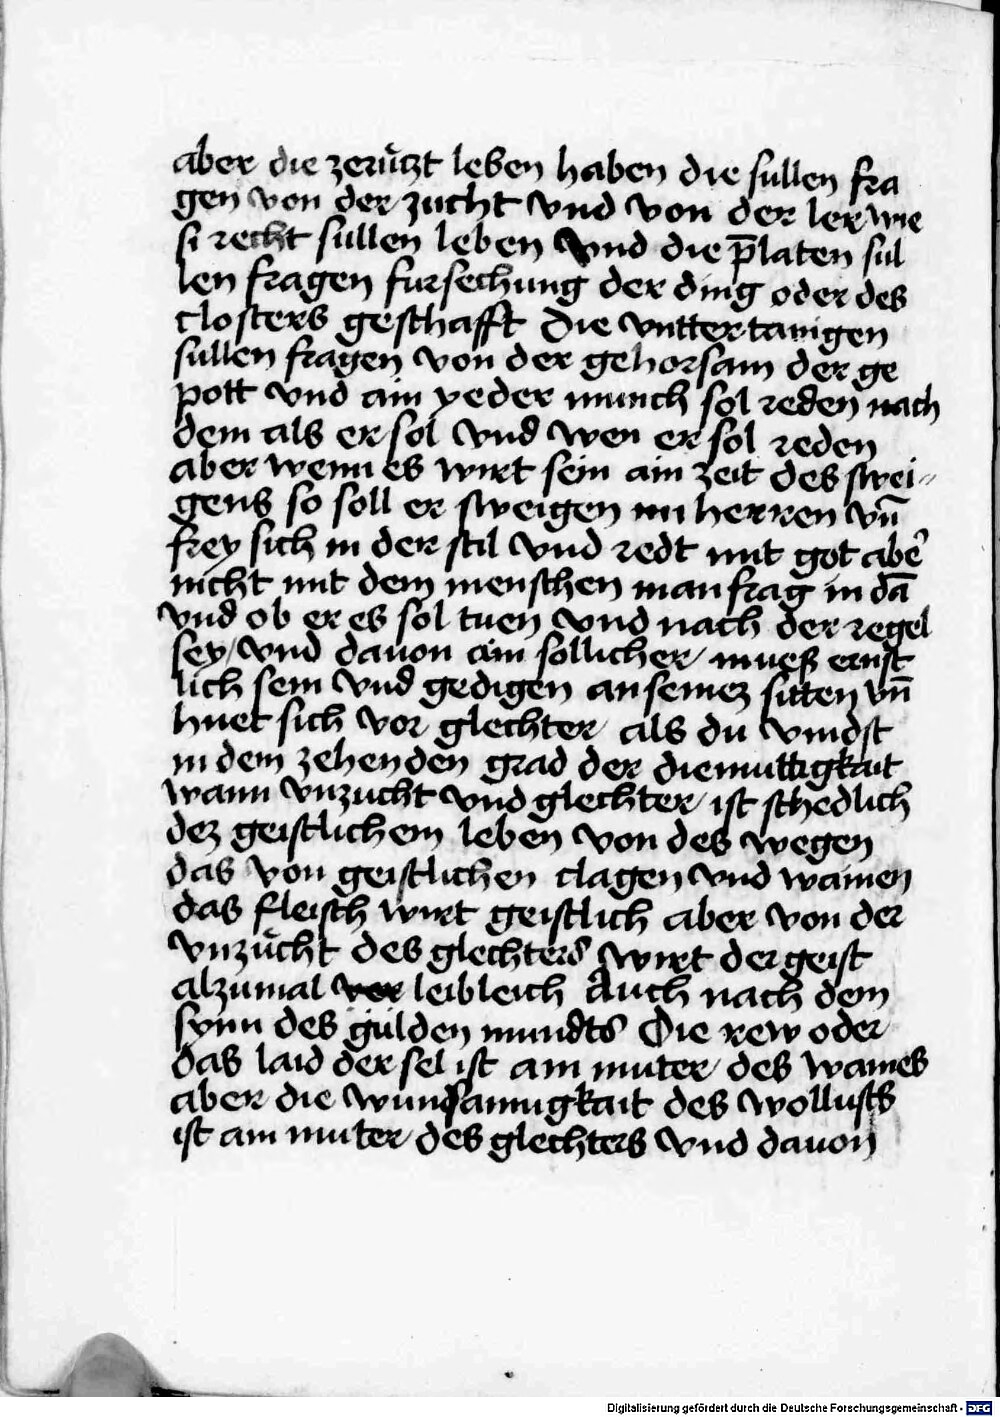 aber die zerützt leben haben die sullen fra
gen von der zucht vnd von der ler wie
si recht sullen leben vnd die p̄laten sul
len fragen fursechung der ding oder des
closters geschafft Die vnttertanigen
sullen fragen von der gehorsam der ge
pott vnd ain yeder munch sol reden nach
dem als er sol vnd wen er sol reden
aber wenn es wirt sein ain zeit des swei-
gens so soll er sweigen im herren vn̄
frey sich in der stil vnd redt mit got aber
nicht mit dem menschen man frag in dā
vnd ob er es sol tuen vnd nach der regel
sey / vnd davon ain sollicher mueß ernst
lich sein vnd gedigen an seinez sitten vn̄
huet sich vor glechter als du vindst
in dem zehenden grad der diemuttigkait
wann vnzucht vnd glechter ist schedlich
dez geistlichem leben von des wegen
das von geistlichen clagen vnd wainen
das fleisch wirt geistlich aber von der
vnzücht des glechters wirt der geist
alzumal leibleich Auch nach dem
synn des gulden mundts Die rew oder
das laid der sel ist am muter des waines
aber die wunsamigkait des wollusts
ist am muter des glechters vnd davon
Digitalisierung gefördert durch die Deutsche Forschungsgemeinschaft - DFG